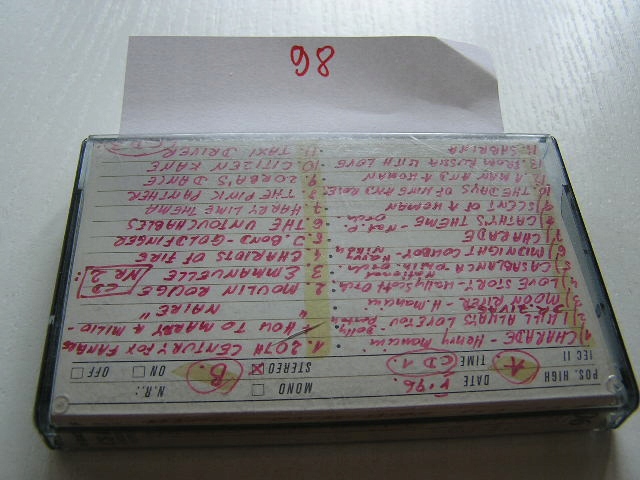 98
POS. HIGH
IEC II
DATE
TIME
V·96.
MONO
STEREO
N.R.:
ON
OFF
A.
CD 1.
1) CHARADE - Henry Mancini
2) I WILL ALWAYS LOVE YOU - Dolly Parton
3) MOON RIVER - H. Mancini
4) LOVE STORY - Wally Scott Orch
5) CASABLANCA National Philh. Orch.
6) MIDNIGHT COWBOY - Harry
7) CHARADE
8) CATHY'S THEME - Nat. P. Orch
9) SCENT OF A WOMAN
10. THE DAYS OF WINE AND ROSE
12. A MAN AND A WOMAN
13. FROM RUSSIA WITH LOVE
SABRINA
B.
1. 20TH CENTURY FOX FANFARE
" HOW TO MARRY A MILIO-
NAIRE "
2. MOULIN ROUGE
3. EMMANUELLE
CD NR 2.
4. CHARIOTS OF FIRE
5. J. BOND - GOLDFINGER
6. THE UNTOUCHABLES
7. HARRY LIME THEMA
8. THE PINK PANTHER
9. ZORBA'S DANCE
10. CITIZEN KANE
11. TAXI DRIVER